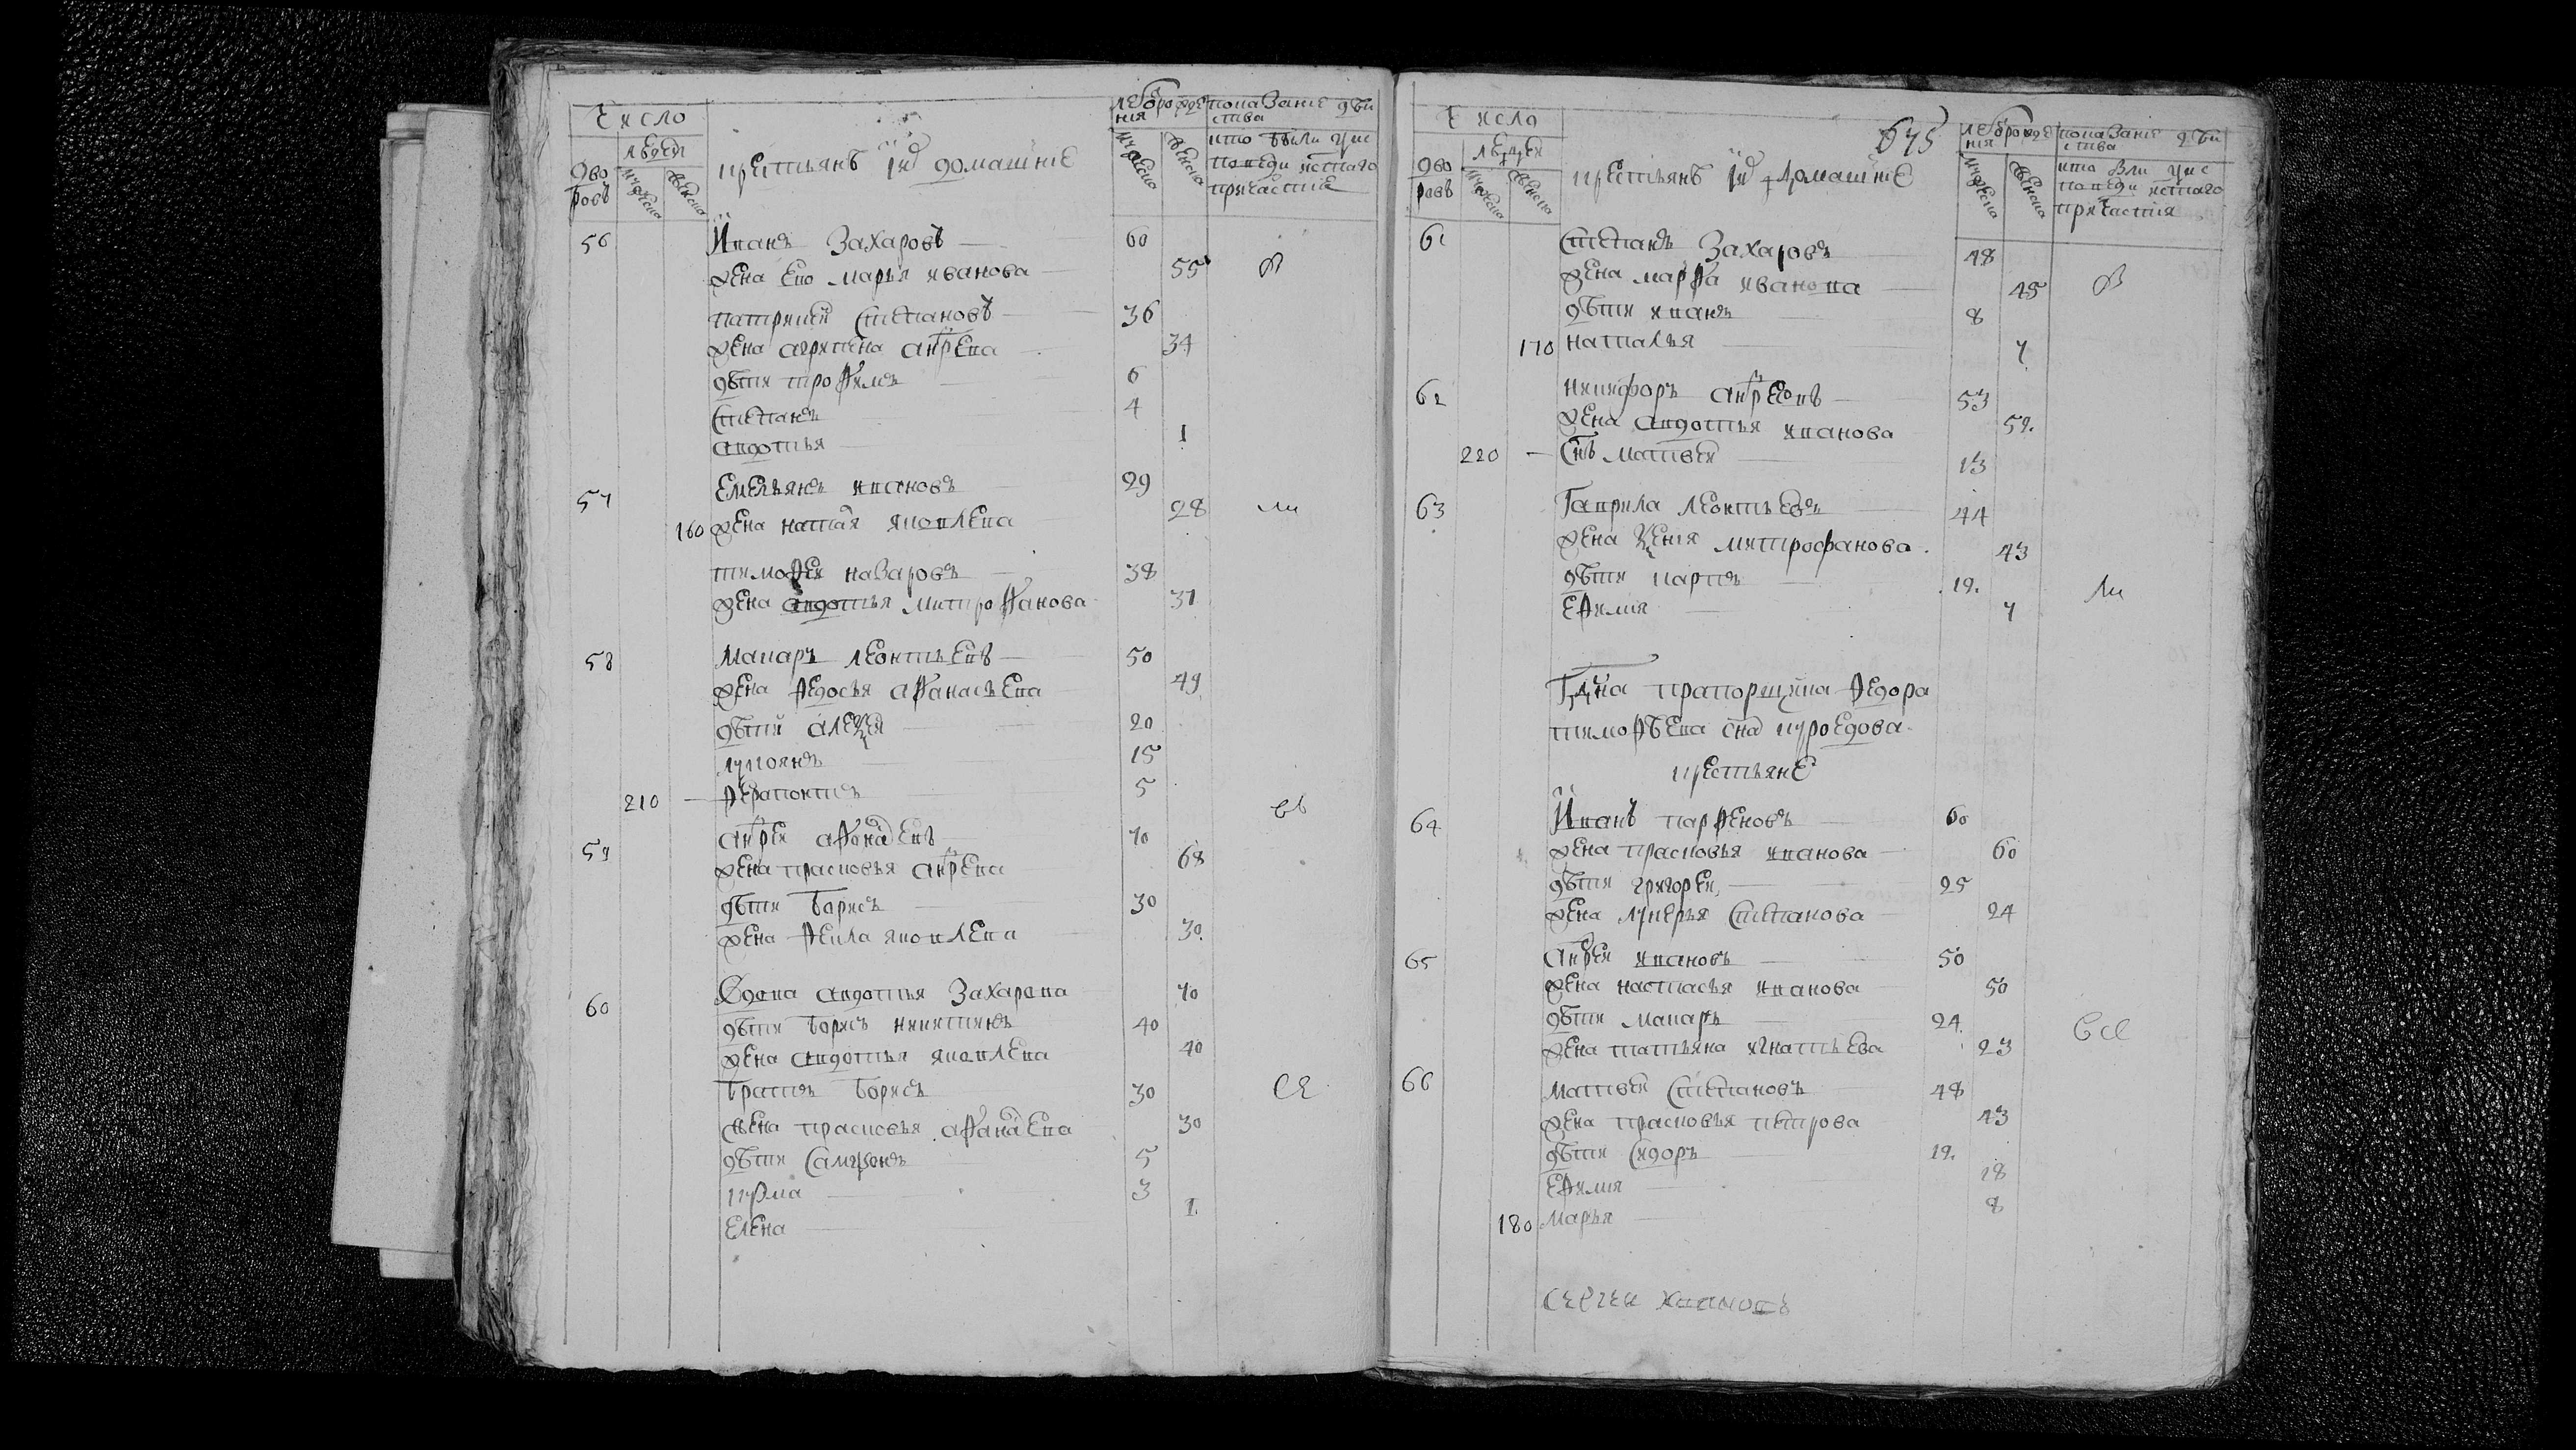 Число
людеи
Дво
ровъ
мужеска
женска
крестьянъ их домашние
Лет от рожде
ния
мужеска
женска
показание деи
ства
кто были у ис
поведи и стаго
причастия
56 Иванъ Захаровъ 60
жена ево марья иванова 55 В
патрикей степановъ 36
жена агрипена андрева 34
дѣти трофимъ 6
степанъ 4
авдотья 1
57 Емельянъ ивановъ 29
160 жена наталя яковлева 28 ли
тимофеи назаровъ 38
жена авдотья митрофанова 37
58 Макаръ леонтьевъ 50
жена федосья афанасьева 49
дѣти алеѯеи 20
лукоянъ 15
210 ферапонтъ 5 бы
59 андреи афонасевъ 70
жена прасковья андрева 68
дѣти борисъ 30
жена фекла яковлева 30
60 вдова авдотья Захарова 70
дѣти борисъ никитинъ 40
жена авдотья яковлева 40
братъ борисъ 30 се
жена прасковья афанасева 30
дѣти Самѱонъ 5
кузма 3
Елена 1
645
Число
людеи
Дво
ровъ
мужеска
женска
крестьянъ их домашние
лет от рожде
ния
мужеска
женска
показание деи
ства
кто были у ис
поведи и стаго
причастия
61 степанъ Захаровъ 48
жена марфа иванова 45 В
дѣти иванъ 8
170 наталья 7
62 никифоръ андреевъ 53
жена авдотья иванова 52
220 снъ матвеи 13
63 Гаврила леонтьевъ 44
жена ѯения митрофанова 43
дѣти карпъ 12 ли
Ефимия 7
Гдна прапорщика федора
тимофѣева сна куроедова
крестьяне
64 Иванъ парфеновъ 60
жена прасковья иванова 60
дѣти григореи 25
жена лукерья степанова 24
65 андреи ивановъ 50
жена настасья иванова 50
дѣти макаръ 24 все
жена татьяна игнатьева 23
66 матвеи степановъ 48
жена прасковья петрова 43
дѣти сидоръ 12
Ефимия 18
180 марья 8
сергеи ивановъ